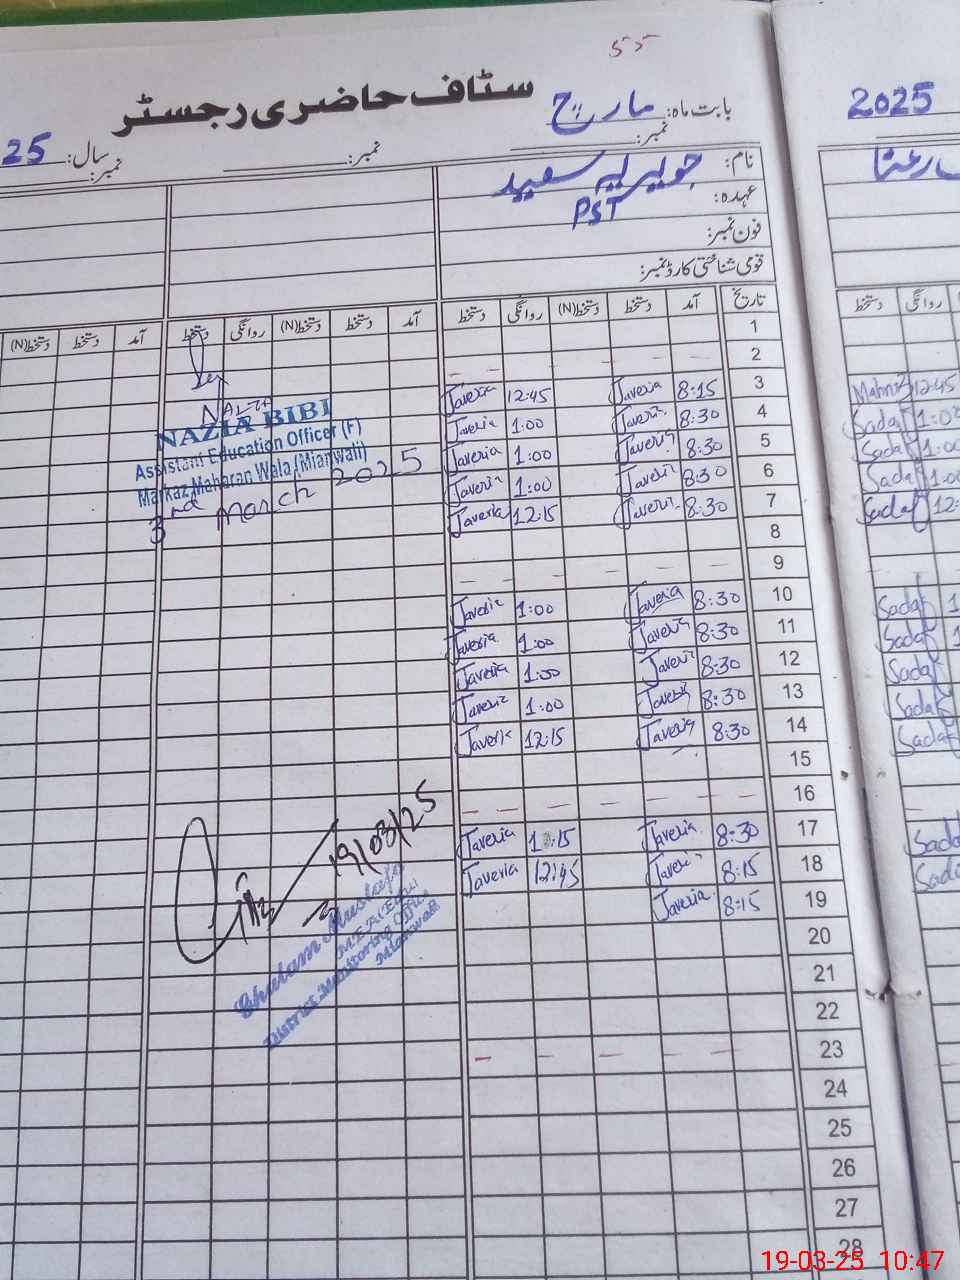 55
سٹاف حاضری رجسٹر
بابت ماہ: مارچ
2025
25 سال:
نمبر: نمبر: نمبر:
نام: جویریہ سعید
عہدہ: PST
فون نمبر:
قومی شناختی کارڈ نمبر:
تاریخ آمد دستخط دستخط(N) روانگی دستخط آمد دستخط دستخط(N) روانگی دستخط آمد دستخط دستخط(N)
روانگی دستخط
1
2
3 8:15 Javeria 12:45 Javeria
4 8:30 Javeria 1:00 Javeria
5 8:30 Javeria 1:00 Javeria
6 8:30 Javeria 1:00 Javeria
7 8:30 Javeria 12:15 Javeria
8
9
10 8:30 Javeria 1:00 Javeria
11 8:30 Javeria 1:00 Javeria
12 8:30 Javeria 1:00 Javeria
13 8:30 Javeria 1:00 Javeria
14 8:30 Javeria 12:15 Javeria
15
16
17 8:30 Javeria 1:15 Javeria
18 8:15 Javeria 12:45 Javeria
19 8:15 Javeria
20
21
22
23
24
25
26
27
28
NAZIA BIBI
Assistant Education Officer (F)
Markaz Maharan Wala (Mianwali)
3rd March 2025
19/03/25
Ghulam Mustafa
District Monitoring Office
Mianwali
12:45
Sadaf 1:00
Sadaf 1:00
Sadaf 1:00
Sadaf 12:
Sadaf 1
Sadaf 1
Sadaf
Sadaf
Sadaf
19-03-25 10:47